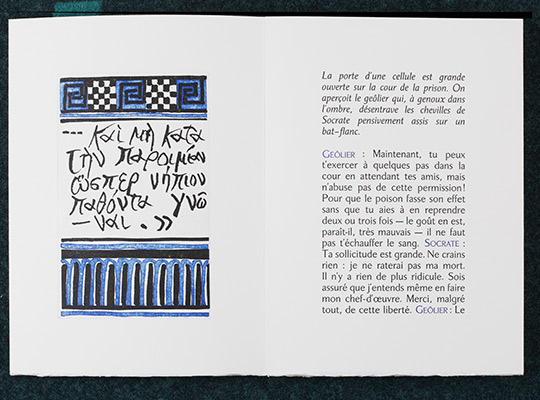 --- καὶ μὴ κατα
τὴν παροιμίαν
ὥσπερ νήπιον
παθόντα γνῶ
–ναι . »
La porte d'une cellule est grande
ouverte sur la cour de la prison. On
aperçoit le geôlier qui, à genoux dans
l'ombre, désentrave les chevilles de
Socrate pensivement assis sur un
bat-flanc.
GEÔLIER : Maintenant, tu peux
t'exercer à quelques pas dans la
cour en attendant tes amis, mais
n'abuse pas de cette permission!
Pour que le poison fasse son effet
sans que tu aies à en reprendre
deux ou trois fois — le goût en est,
paraît-il, très mauvais — il ne faut
pas t'échauffer le sang. SOCRATE :
Ta sollicitude est grande. Ne crains
rien : je ne raterai pas ma mort.
Il n'y a rien de plus ridicule. Sois
assuré que j'entends même en faire
mon chef-d'œuvre. Merci, malgré
tout, de cette liberté. GEÔLIER : Le